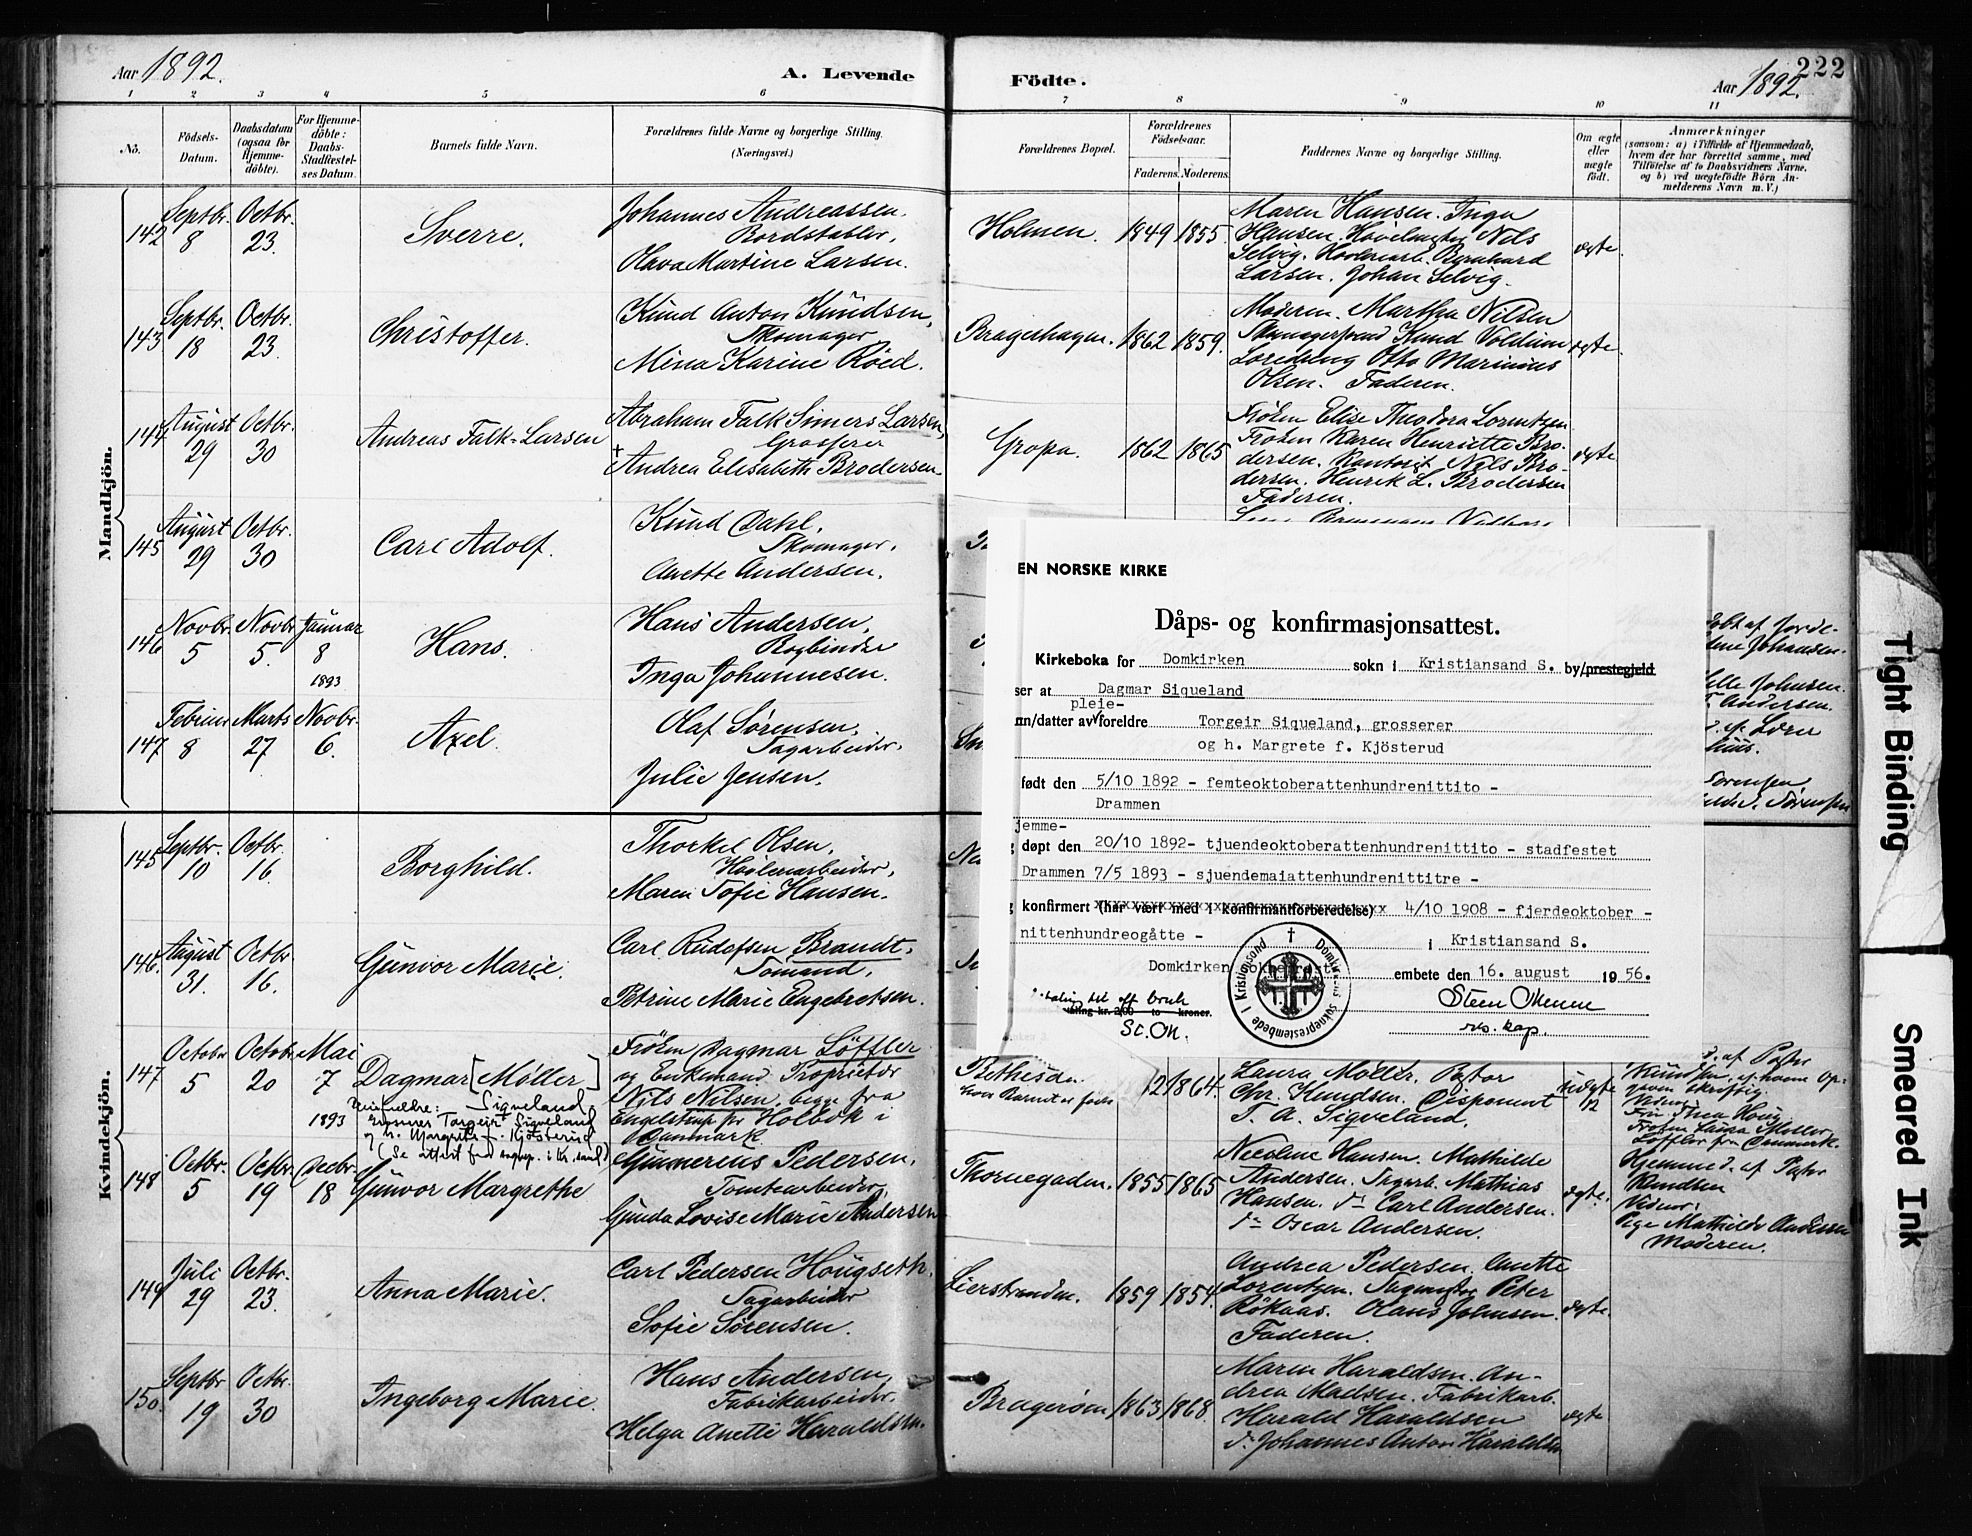 Aar 1892.
A. Levende
Födte.
Aar 1892.
222
1 2 3 4 5 6 7 8 9 10 11
No.
Födsels-Datum.
Daabsdatum (ogsaa for Hjemme-döbte).
For Hjemme-döbte: Daabs-Stadfæstel-ses Datum.
Barnets fulde Navn.
Forældrenes fulde Navne og borgerlige Stilling.
(Næringsvei.)
Forældrenes Bopæl.
Forældrenes Födselsaar.
Faderens. Moderens.
Faddernes Navne og borgerlige Stilling.
Om ægte eller uægte födt.
Anmærkninger
(saasom: a) i Tilfælde af Hjemmedaab,
hvem der har forrettet samme, med
Tilföielse af to Daabsvidners Navne,
og b) ved uægtefödte Börn An-
melderens Navn m. V.)
Mandkjön.
142 Septbr. 8 Octbr. 23. Sverre.
Johannes Andreassen.
Bordstabler.
Olava Martine Larsen.
Holmen. 1849 1855.
Maren Hansen. Inga
Hansen. Høvelmester Nils
Selvig. Høvleriarb. Bernhard
Larsen. Johan Selvig.
ægte.
143 Septbr. 18 Octbr. 23 Christoffer.
Knud Anton Knudsen,
Skomager
Mina Karine Röed.
Bragerhagen. 1862 1859.
Moderen. Martha Nilsen
Skomagersvend Knud Voldum
Otto Marinius
Olsen. Faderen.
ægte.
144 August 29 Octbr. 30 Andreas Falk-Larsen
Abraham Falk Simers Larsen,
Grosserer
+ Andrea Elisabeth Brodersen
Gropa. 1862 1865
Frøken Elise Theodora Lorentzen
Frøken Karen Henriette Bro-
dersen. Kontorist Nils Bro-
dersen. Henrik L. Brodersen
Faderen.
ægte
145 August 29 Octbr. 30 Carl Adolf.
Knud Dahl,
Skomager.
Anette Andersen.
146 Novbr. 5 Novbr. 5. Januar 8 1893 Hans.
Hans Andersen,
Bogbinder
Inga Johannesen.
147 Februar 8 Marts 27 Novbr. 6. Axel.
Olaf Sørensen,
Sagarbeider.
Julie Jensen.
EN NORSKE KIRKE
Dåps- og konfirmasjonsattest.
Kirkeboka for Domkirken sokn i Kristiansand S. by/prestegjeld
ser at Dagmar Siqueland
pleie-
nn/datter av foreldre Torgeir Siqueland, grosserer
og h. Margrete f. Kjösterud
født den 5/10 1892 - femteoktoberattenhundrenittito -
Drammen
jemme-
døpt den 20/10 1892- tjuendeoktoberattenhundrenittito - stadfestet
Drammen 7/5 1893 - sjuendemaiattenhundrenittitre -
konfirmert (har vært med i konfirmantforberedelse) 4/10 1908 - fjerdeoktober -
nittenhundreogåtte - i Kristiansand S.
Domkirken sokneprest-
embete den 16. august 1956.
Steen Olsen
res. kap.
til off bruk
kr. 2,00 to kroner.
St.On.
Domkirkens Sokneprestembede i Kristiansand
Kvindekjön.
145 Septbr. 10 Octbr. 16. Borghild.
Thorkel Olsen,
Høvleriarbeider,
Maren Sofie Hansen.
146. August 31. Octbr. 16. Gunvor Marie.
Carl Rudofsen Brandt.
Sömand,
Petrine Marie Engebretsen.
147 Octobr 5 Octobr. 20 Mai 7 1893 Dagmar [Møller]
Pleieforeldre: Siqveland
Torgeir Siqveland
og h. Margrete f. Kjösterud
(Se attest fra sognep. i Kr.sand)
Frøken Dagmar Løffler
og Enkemand Proprietær
Nils Nilsen, begge fra
Engelstrup pr Holbek i
Danmark.
Bethesda
hvor Barnet er født
1864.
Laura Møller. Pastor
Chr. Knudsen. Disponent
T. A. Siqveland.
uægte
12
af Pastor
Knudsen
skriftlig.
Vidner:
Fru Thea Houg
Frøken Laura Møller
Löffler fra Danmark.
148 Octbr. 5 Octbr. 19 Decbr. 18 Gunvor Margrethe
Gunnerius Pedersen,
Tomtearbeider,
Gunda Lovise Marie Andersen
Thornegaden. 1855 1865
Nicoline Hansen. Mathilde
Andersen. Sagarb. Mathias
Hansen. do Carl Andersen.
do Oscar Andersen.
ægte.
Hjemmed. af Pastor
Knudsen
Vidner:
Pige Mathilde Andersen
Moderen.
149 Juli 29 Octbr. 23 Anna Marie.
Carl Pedersen Hougseth.
Sagarbeider
Sofie Sørensen.
Lierstranden. 1859 1854.
Andrea Pedersen. Anette
Lorentzen. Sagmester Peter
Rökaas. Olaus Johnsen.
Faderen.
ægte.
150. Septbr 19 Octbr. 30 Ingeborg Marie.
Hans Andersen,
Fabrikarbeider.
Helga Anette Haraldsen.
Bragerøen 1863 1868.
Maren Haraldsen. An-
drea Madsen. Fabrikarb.
Harald Haraldsen
do Johannes Anton Haraldsen
ægte
Tight Binding
Smeared Ink